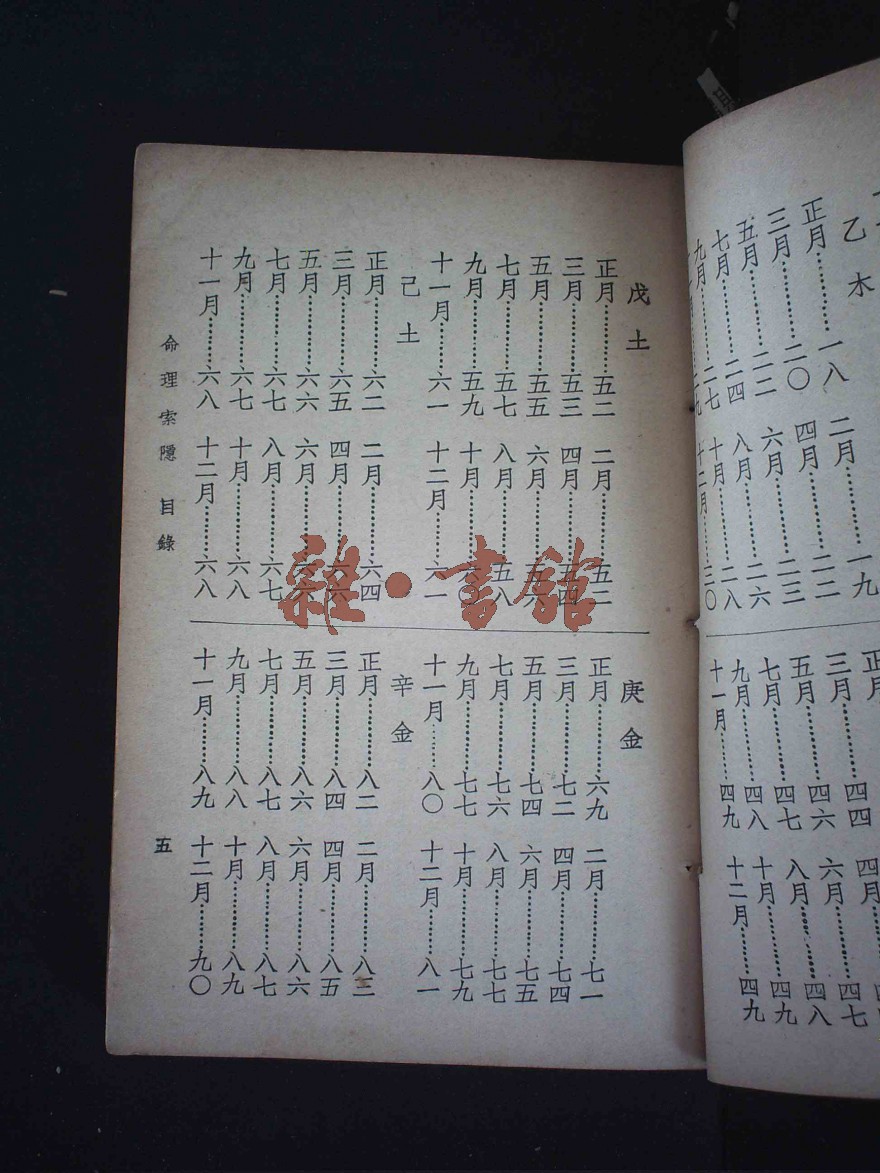 乙木
正月………一八 二月………一九
三月………二〇 四月………二二
五月………二二 六月………二三
七月………二四 八月………二六
九月………二七 十月………二八
十二月……三〇
正月
三月………四四 四月
五月………四六 六月………四七
七月………四七 八月………四八
九月………四八 十月………四九
十一月……四九 十二月……四九
戊土
正月………五二 二月………五二
三月………五三 四月………五四
五月………五五 六月………五六
七月………五七 八月………五八
九月………五九 十月………六〇
十一月……六一 十二月……六一
己土
正月………六二 二月………六四
三月………六五 四月………六六
五月………六六 六月………六六
七月………六七 八月………六七
九月………六七 十月………六八
十一月……六八 十二月……六八
庚金
正月………六九 二月………七一
三月………七二 四月………七四
五月………七四 六月………七五
七月………七六 八月………七七
九月………七七 十月………七九
十一月……八〇 十二月……八一
辛金
正月………八二 二月………八三
三月………八四 四月………八五
五月………八六 六月………八六
七月………八七 八月………八七
九月………八八 十月………八九
十一月……八九 十二月……九〇
命理索隱 目錄 五
雜·書館